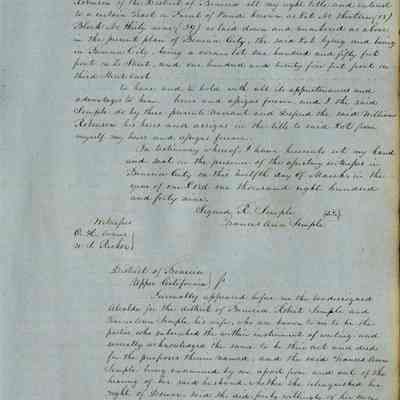 Robinson of the District of Benicia all my right title and interest
to a certain tract or Parcel of Land known as Lot No thirteen (13)
Block No thirty nine (39) as laid down and numbered as above
in the present plan of Benicia City, the said Lot lying and being
in Benicia City, being a corner lot one hundred and fifty feet
front on Street, and one hundred and twenty five feet front on
third Street East
To have and to hold with all its appurtenances and
advantages to him heirs and assigns forever and I the said
Semple do by these presents Warrant and Defend the said William
Robinson his heirs and assigns in the title to said Lot from
myself my heirs and assigns forever.
In testimony whereof I have hereunto set my hand
and seal in the presence of the attesting witnesses in
Benicia City on this twelfth day of March in the
year of our Lord one thousand eight hundred
and forty nine.
Signed R. Semple
Frances Ann Semple
Witnesses
District of Benicia
Upper California
Personally appeared before me the undersigned
Alcalde for the district of Benicia Robert Semple and
Frances Ann Semple his wife, who are known to me to be the
parties who subscribed the within instrument of writing, and
severally acknowledged the same to be their act and deed
for the purposes therein named, and the said Frances Ann
Semple being examined by me apart from and out of the
hearing of her said husband whether she relinquished her
right of Dower said she did freely willingly of her own